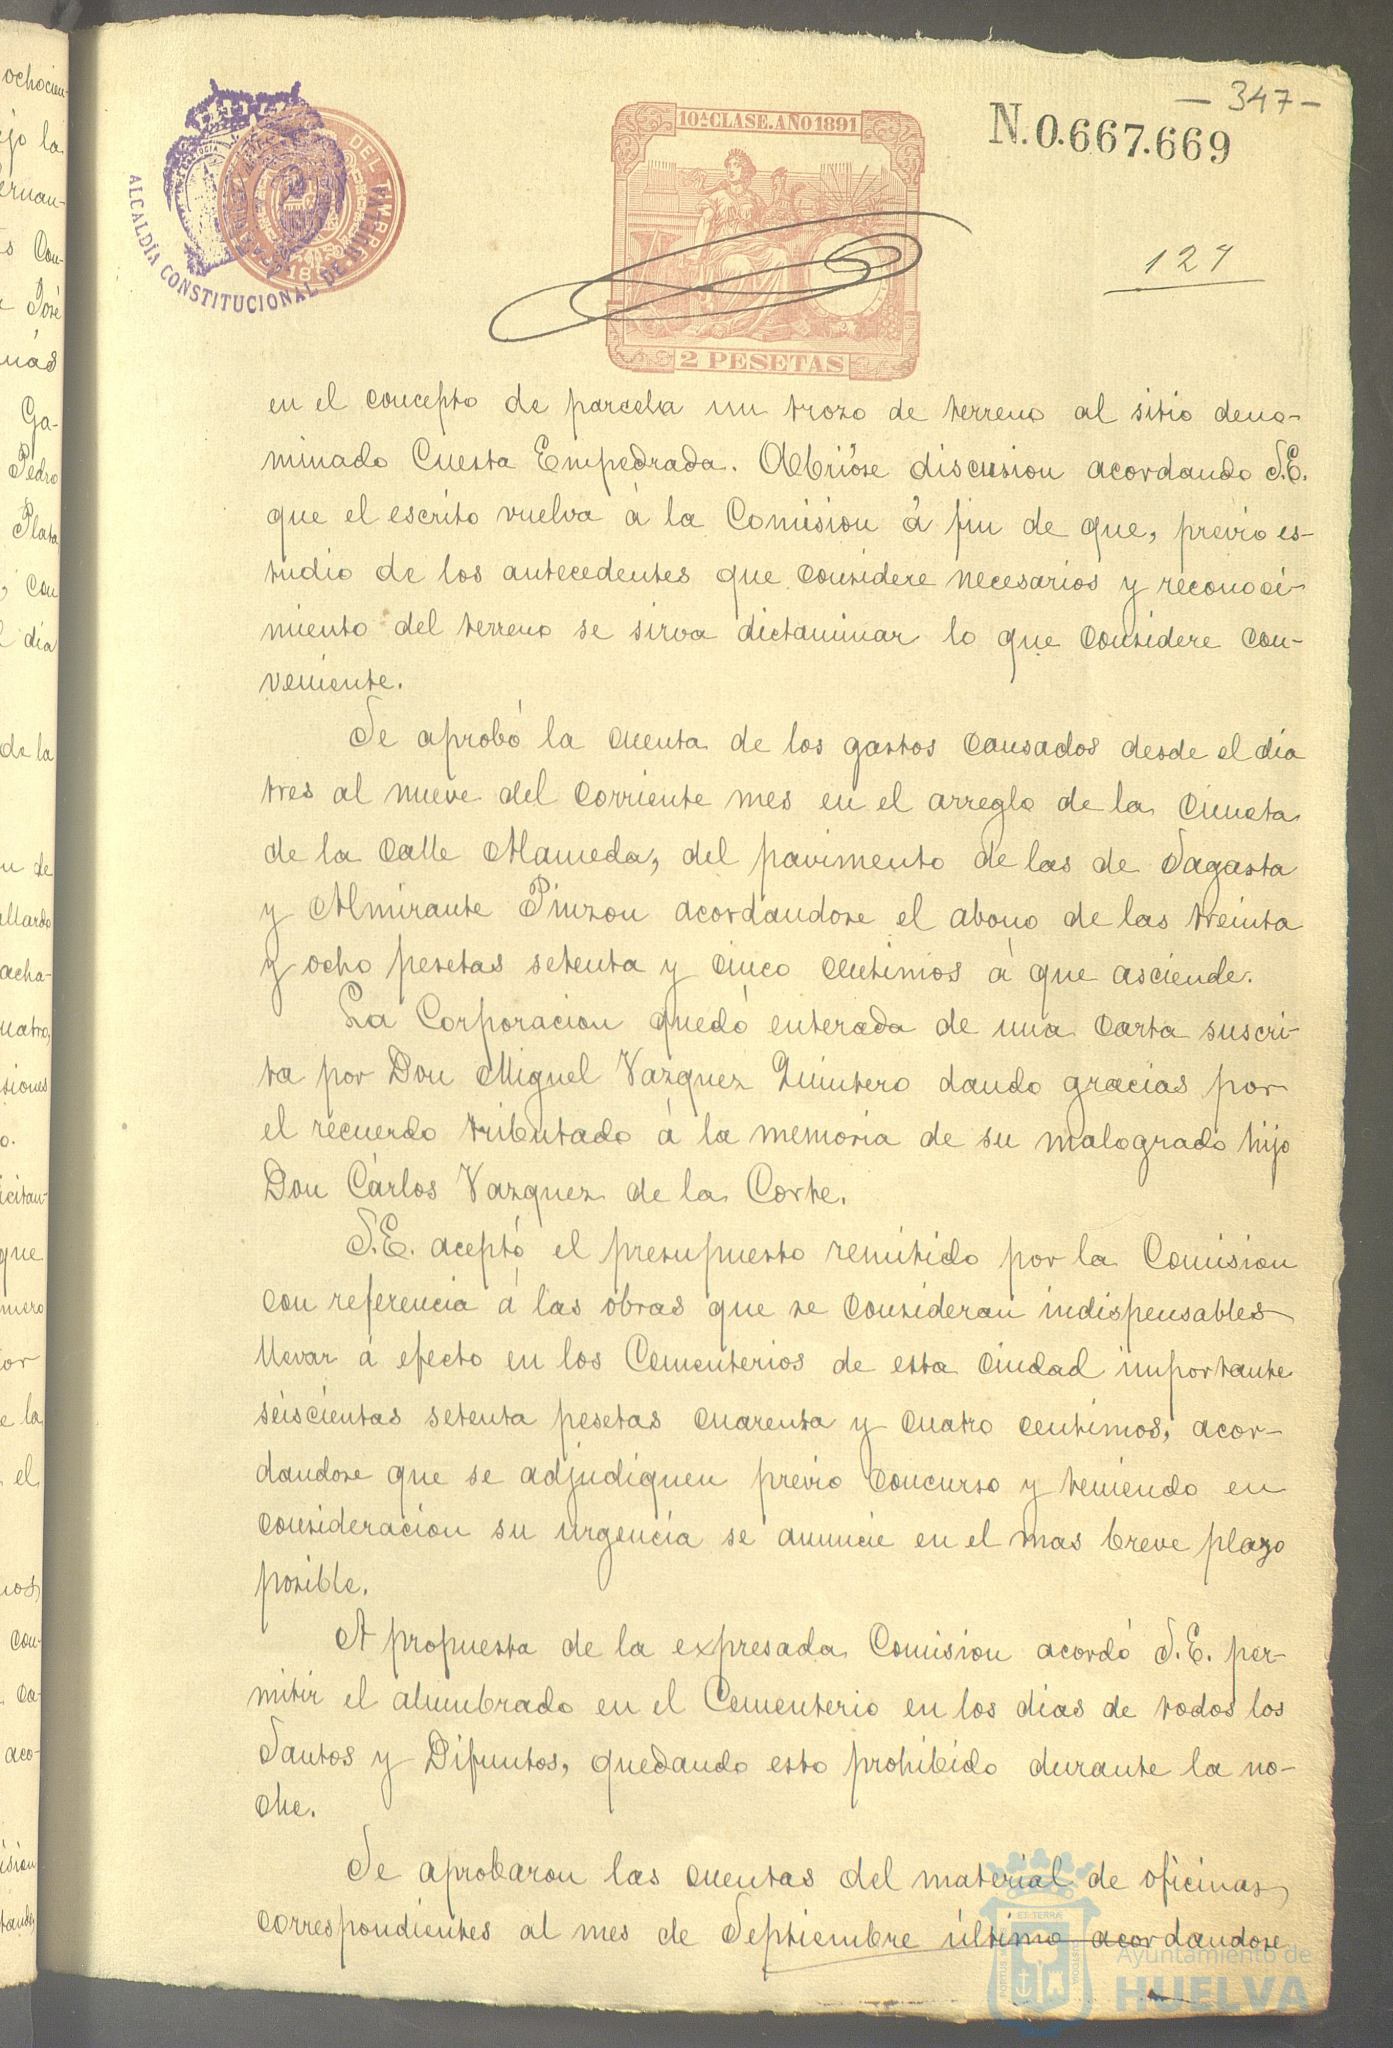 - 347 -
10ª CLASE. AÑO 1891
N.0.667.669
ALCALDÍA CONSTITUCIONAL DE HUELVA
DEL TIMBRE
127
2 PESETAS
en el concepto de parcela un trozo de terreno al sitio deno-
minado Cuesta Empedrada. Abrióse discusion acordando S.E.
que el escrito vuelva á la Comision á fin de que, previo es-
tudio de los antecedentes que considere necesarios y reconoci-
miento del terreno se sirva dictaminar lo que considere con-
veniente.
Se aprobó la cuenta de los gastos causados desde el dia
tres al nueve del corriente mes en el arreglo de la cuneta
de la calle Alameda, del pavimento de las de Sagasta
y Almirante Pinzon acordandose el abono de las treinta
y ocho pesetas setenta y cinco centimos á que asciende.
La Corporacion quedó enterada de una carta suscri-
ta por Don Miguel Vazquez Quintero dando gracias por
el recuerdo tributado á la memoria de su malogrado hijo
Don Cárlos Vazquez de la Corte.
S.E. aceptó el presupuesto remitido por la Comision
con referencia á las obras que se consideran indispensables
llevar á efecto en los Cementerios de esta Ciudad importante
seiscientas setenta pesetas cuarenta y cuatro centimos, acor-
dandose que se adjudiquen previo concurso y teniendo en
consideracion su urgencia se anuncie en el mas breve plazo
posible.
A propuesta de la expresada Comision acordó S.E. per-
mitir el alumbrado en el Cementerio en los dias de todos los
Santos y Difuntos, quedando esto prohibido durante la no-
che.
Se aprobaron las cuentas del material de oficinas
correspondientes al mes de Septiembre último acordandose
Ayuntamiento de
HUELVA